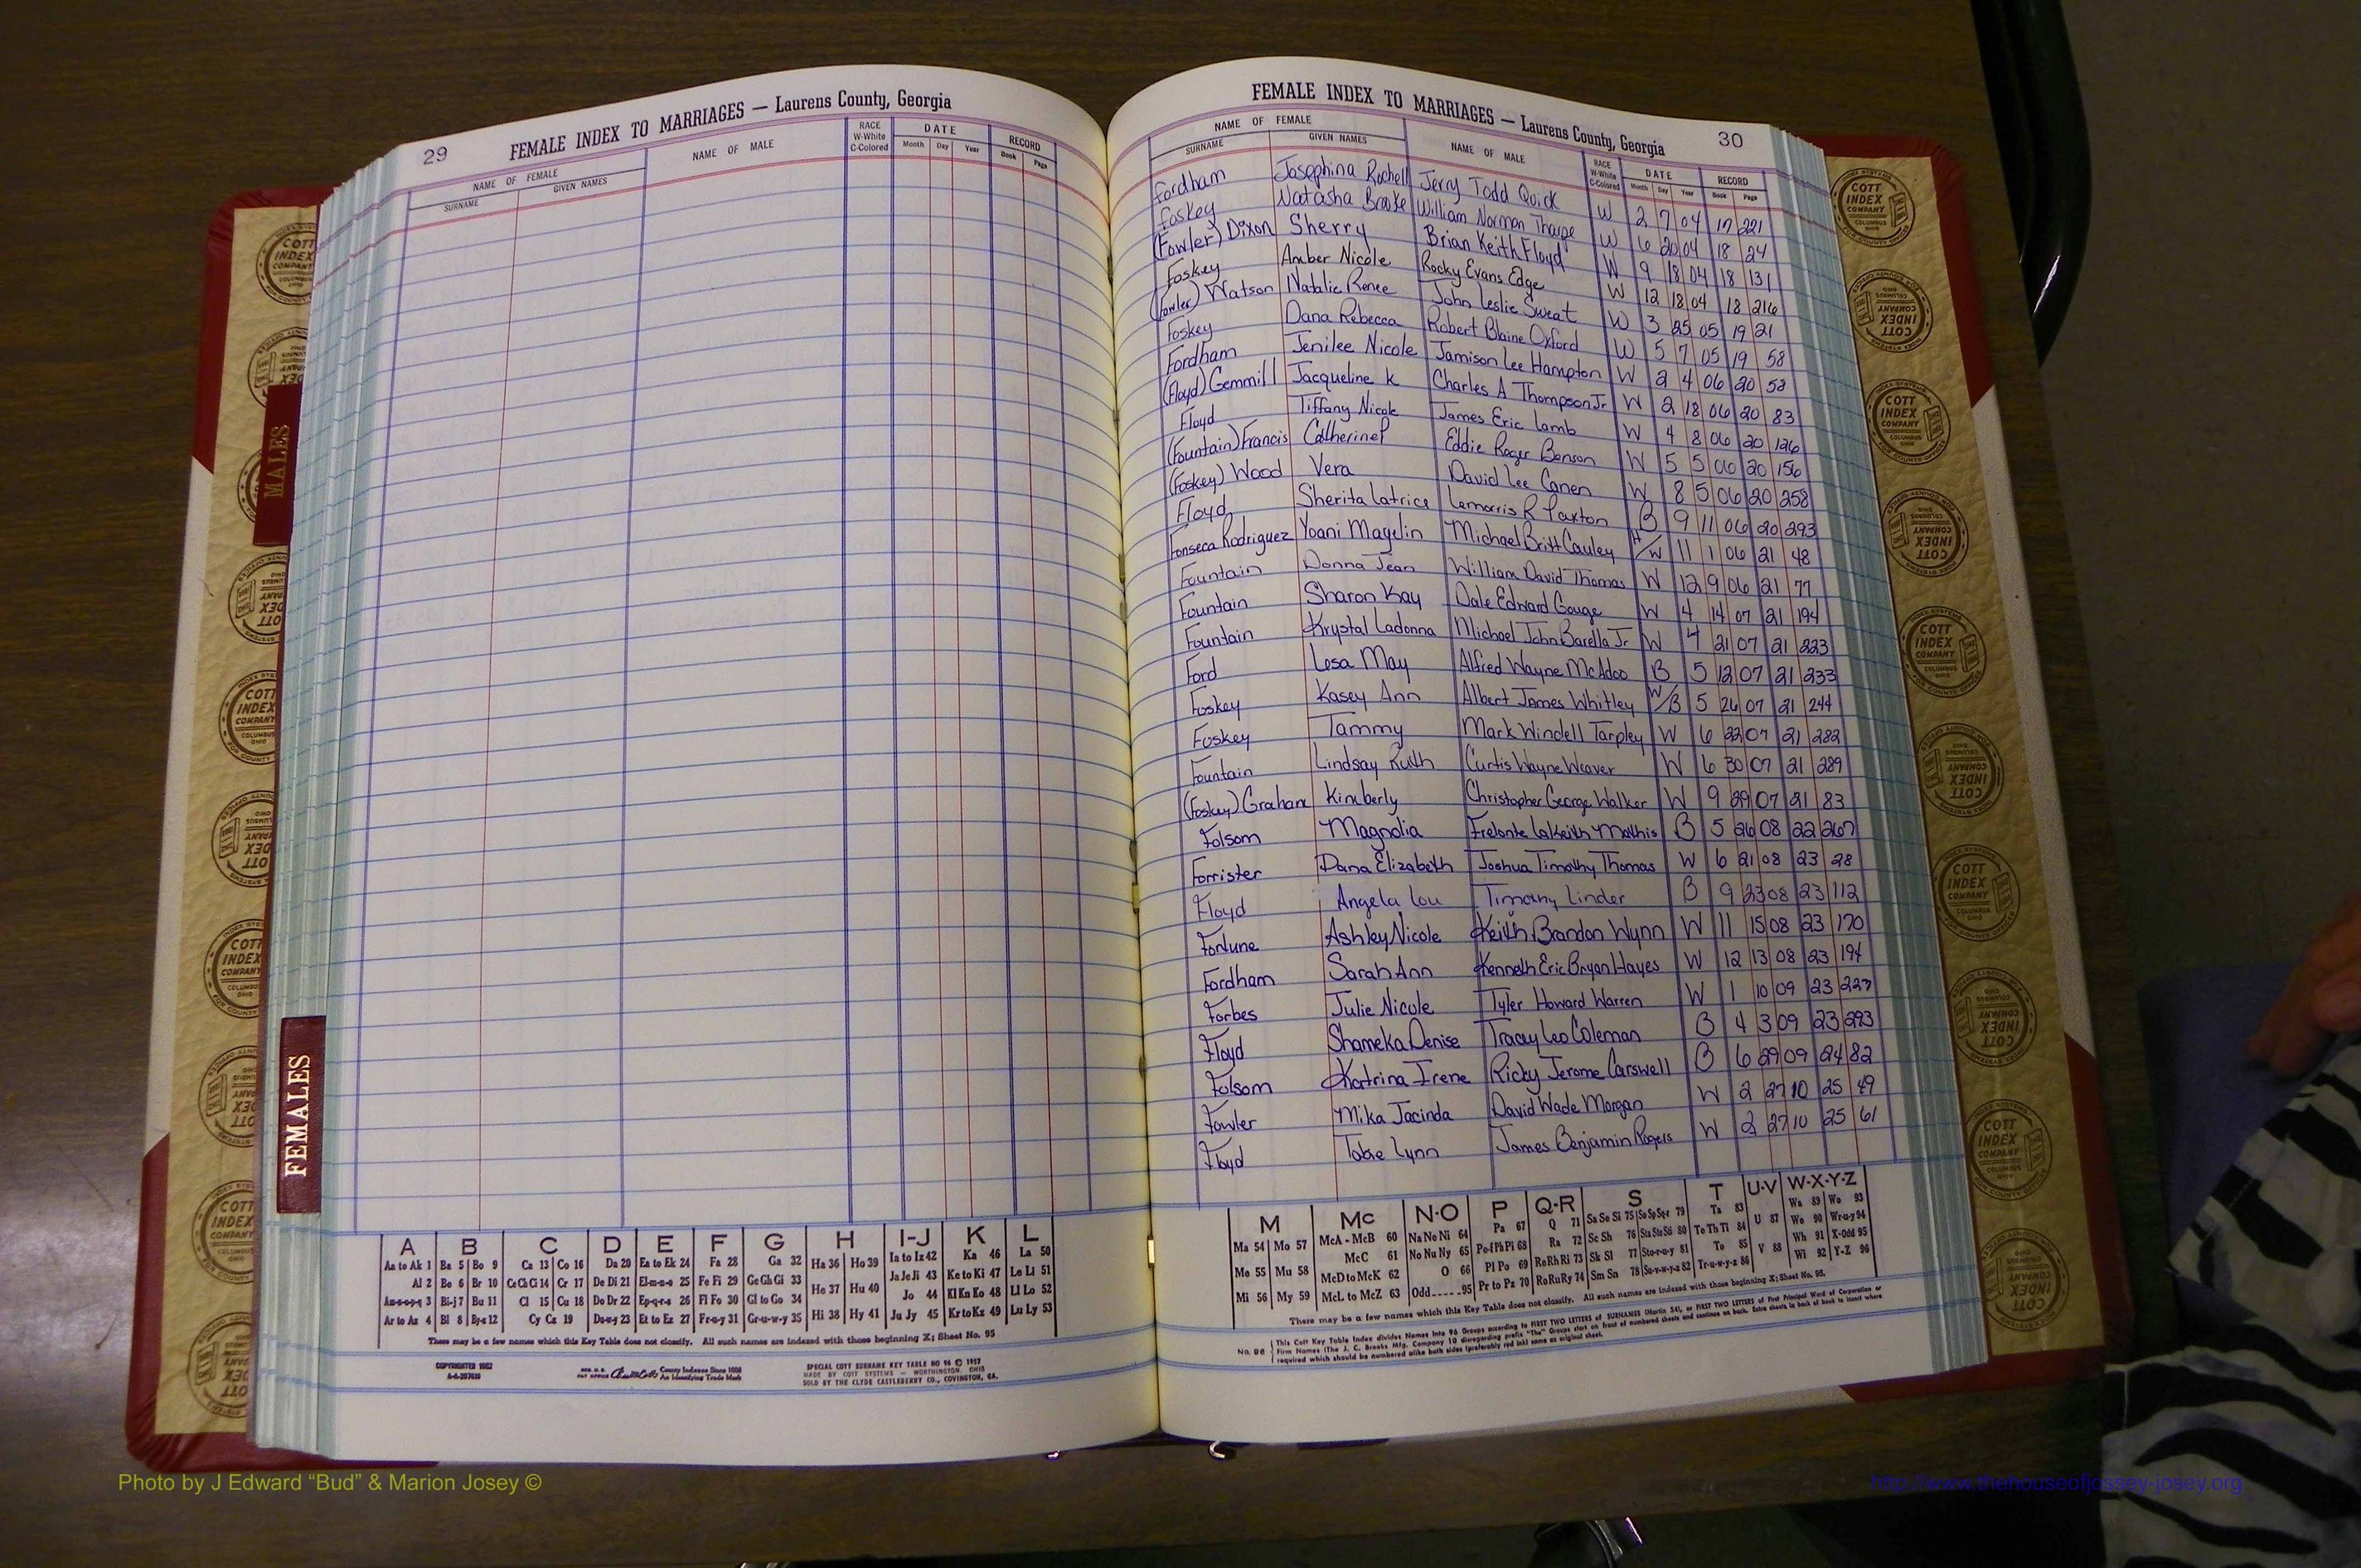 29
FEMALE INDEX TO MARRIAGES — Laurens County, Georgia
NAME OF FEMALE
SURNAME GIVEN NAMES
NAME OF MALE
RACE W-White C-Colored
DATE
Month Day Year
RECORD
Book Page
30
FEMALE INDEX TO MARRIAGES — Laurens County, Georgia
NAME OF FEMALE
SURNAME GIVEN NAMES
NAME OF MALE
RACE W-White C-Colored
DATE
Month Day Year
RECORD
Book Page
Fordham Josephina Rochell Jerry Todd Quick W 2 7 04 17 221
Foskey Natasha Brooke William Norman Tharpe W 6 20 04 18 24
(Fowler) Dixon Sherry Brian Keith Floyd W 9 18 04 18 131
Foskey Amber Nicole Rocky Evans Edge W 12 18 04 18 216
(Fowler) Watson Natalie Renee John Leslie Sweat W 3 25 05 19 21
Foskey Dana Rebecca Robert Blaine Oxford W 5 7 05 19 58
Fordham Jenilee Nicole Jamison Lee Hampton W 2 4 06 20 52
(Floyd) Gemmill Jacqueline K Charles A Thompson Jr W 2 18 06 20 83
Floyd Tiffany Nicole James Eric Lamb W 4 8 06 20 126
(Fountain) Francis Catherine P Eddie Roger Benson W 5 5 06 20 156
(Foskey) Wood Vera David Lee Canen W 8 5 06 20 258
Floyd Sherita Latrice Lemorris R Paxton B 9 11 06 20 293
Fonseca Rodriguez Yoani Mayelin Michael Britt Cauley H/W 11 1 06 21 48
Fountain Donna Jean William David Thomas W 12 9 06 21 77
Fountain Sharon Kay Dale Edward Gouge W 4 14 07 21 194
Fountain Krystal Ladonna Michael John Barella Jr W 4 21 07 21 223
Ford Losa May Alfred Wayne McAdoo B 5 12 07 21 233
Foskey Kasey Ann Albert James Whitley W/B 5 26 07 21 244
Foskey Tammy Mark Windell Tarpley W 6 22 07 21 282
Fountain Lindsay Ruth Curtis Wayne Weaver W 6 30 07 21 289
(Foskey) Graham Kimberly Christopher George Walker W 9 29 07 21 83
Folsom Magnolia Frelonte Lakeith Mathis B 5 26 08 22 267
Forrister Dana Elizabeth Joshua Timothy Thomas W 6 21 08 23 28
Floyd Angela Lou Timothy Linder B 9 23 08 23 112
Fortune Ashley Nicole Keith Brandon Wynn W 11 15 08 23 170
Fordham Sarah Ann Kenneth Eric Bryan Hayes W 12 13 08 23 194
Forbes Julie Nicole Tyler Howard Warren W 1 10 09 23 227
Floyd Shameka Denise Tracy Leo Coleman B 4 3 09 23 293
Folsom Katrina Irene Ricky Jerome Carswell B 6 29 09 24 82
Fowler Mika Jacinda David Wade Morgan W 2 27 10 25 49
Floyd Tobie Lynn James Benjamin Rogers W 2 27 10 25 61
MALES
FEMALES
A B C D E F G H I-J K L
Aa to Ak 1 Ba 5 Bo 9 Ca 13 Co 16 Da 20 Ea to Ek 24 Fa 28 Ga 32 Ha 36 Ho 39 Ia to Iz 42 Ka 46 La 50
Al 2 Be 6 Br 10 Ce Ch Ci 14 Cr 17 De Di 21 El-m-n-o 25 Fe Fi 29 Ge Gh Gi 33 He 37 Hu 40 Ja Je Ji 43 Ke to Ki 47 Le Li 51
Am-n-o-p-q 3 Bi-j 7 Bu 11 Cl 15 Cu 18 Do Dr 22 Ep-q-r-s 26 Fl Fo 30 Gl to Go 34 Jo 44 Kl Kn Ko 48 Ll Lo 52
Ar to Az 4 Bl 8 By-z 12 Cy Cz 19 Du-w-y 23 Et to Ez 27 Fr-u-y 31 Gr-u-w-y 35 Hi 38 Hy 41 Ju Jy 45 Kr to Kz 49 Lu Ly 53
There may be a few names which this Key Table does not classify. All such names are indexed with those beginning X; Sheet No. 95
COPYRIGHTED 1952
County Indexes Since 1888
An Identifying Trade Mark
SPECIAL COTT SURNAME KEY TABLE NO 96 © 1957
MADE BY COTT SYSTEMS — WORTHINGTON, OHIO
SOLD BY THE CLYDE CASTLEBERRY CO., COVINGTON, GA.
M Mc N-O P Q-R S T U-V W-X-Y-Z
Ma 54 Mo 57 McA - McB 60 Na Ne Ni 64 Pa 67 Q 71 Sa Se Si 75 So Sp Sq-r 79 Ta 83 U 87 Wa 89 Wo 93
Me 55 Mu 58 McC 61 No Nu Ny 65 Pe-f Ph Pi 68 Ra 72 Sc Sh 76 Sta Ste Sti 80 Te Th Ti 84 We 90 Wr-u-y 94
McD to McK 62 O 66 Pl Po 69 Re Rh Ri 73 Sk Sl 77 Sto-r-u-y 81 To 85 V 88 Wh 91 X-Odd 95
Mi 56 My 59 McL to McZ 63 Odd-----95 Pr to Pz 70 Ro Ru Ry 74 Sm Sn 78 Su-v-w-y-z 82 Tr-u-w-y-z 86 Wi 92 Y-Z 96
There may be a few names which this Key Table does not classify. All such names are indexed with those beginning X; Sheet No. 95.
No. 96
This Cott Key Table Index divides Names into 96 Groups according to FIRST TWO LETTERS of SURNAMES (Martin 54), or FIRST TWO LETTERS of First Principal Word of Corporation or
Firm Names (The J. C. Brooks Mfg. Company 10 disregarding prefix "The" Groups start on front of numbered sheets and continue on back. Extra sheets in back of book to insert where
required which should be numbered alike both sides (preferably red ink) same as original sheet.
COTT INDEX COMPANY
COLUMBUS OHIO
INDEX SYSTEMS
FOR COUNTY OFFICES
Photo by J Edward “Bud” & Marion Josey ©
http://www.thehouseofjossey-josey.org